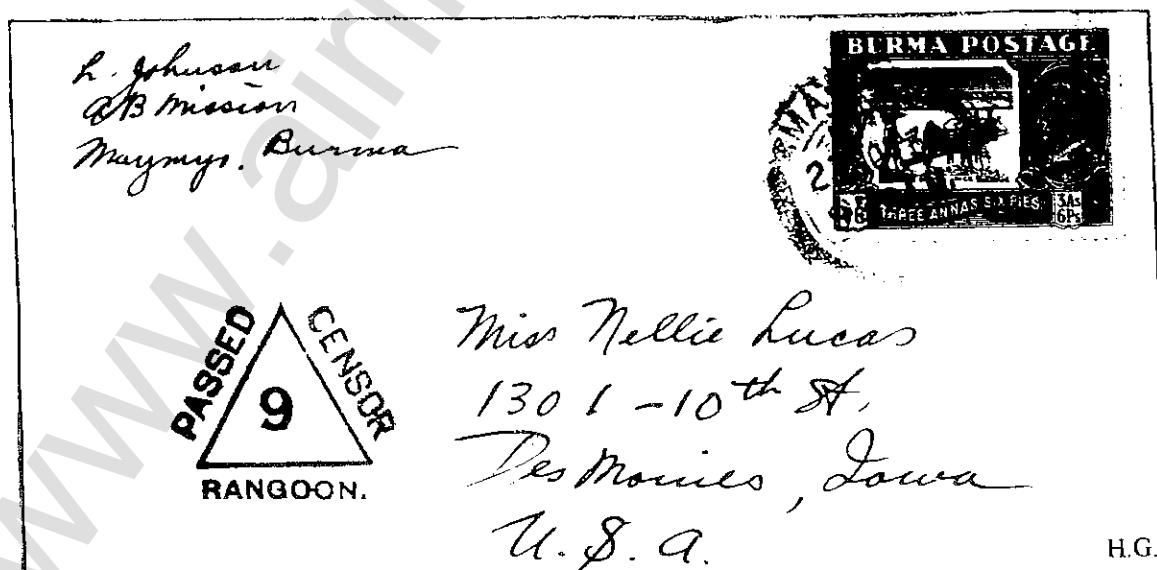 L. Johnson
AB Mission
Maymyo. Burma
BURMA POSTAGE
MA
2
THREE ANNAS SIX PIES
3As
6Ps
PASSED
CENSOR
9
RANGOON.
Miss Nellie Lucas
1301-10th St.
Des Moines, Iowa
U.S.A.
H.G.
www.air